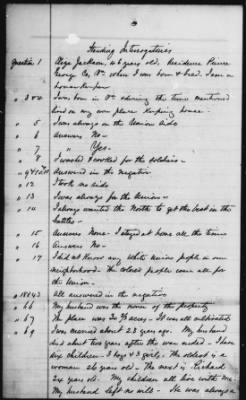 Standing Interrogatories
Question 1 Eliza Jackson, 46 years old. Residence Prince
George Co, Va. where I was born & bred. I am a
house-keeper
I was born in Va during the time mentioned
lived on my own place keeping house.
" 5 I was always on the Union side
" 6 Answers No -
" 7 " Yes -
" 8 I washed & cooked for the soldiers -
Answered in the negative
" 12 I took no side
" 13 I was always for the Union -
" 14 I always wanted the North to get the best in the
battles -
" 15 Answers None - I stayed at home all the time
" 16 Answers No -
" 17 I did not know any white Union people in our
neighborhood. The colored people were all for
the Union.
All answered in the negative
" 66 My husband was the owner of the property
" 67 The place was acres - It was all cultivated
" 69 I was married about 23 years ago. My husband
died about two years after the war ended - I have
six children - 3 boys & 3 girls. The oldest is a
woman 26 years old - The next is Richard
24 years old. My children all live with me
My husband left no will - He was always a